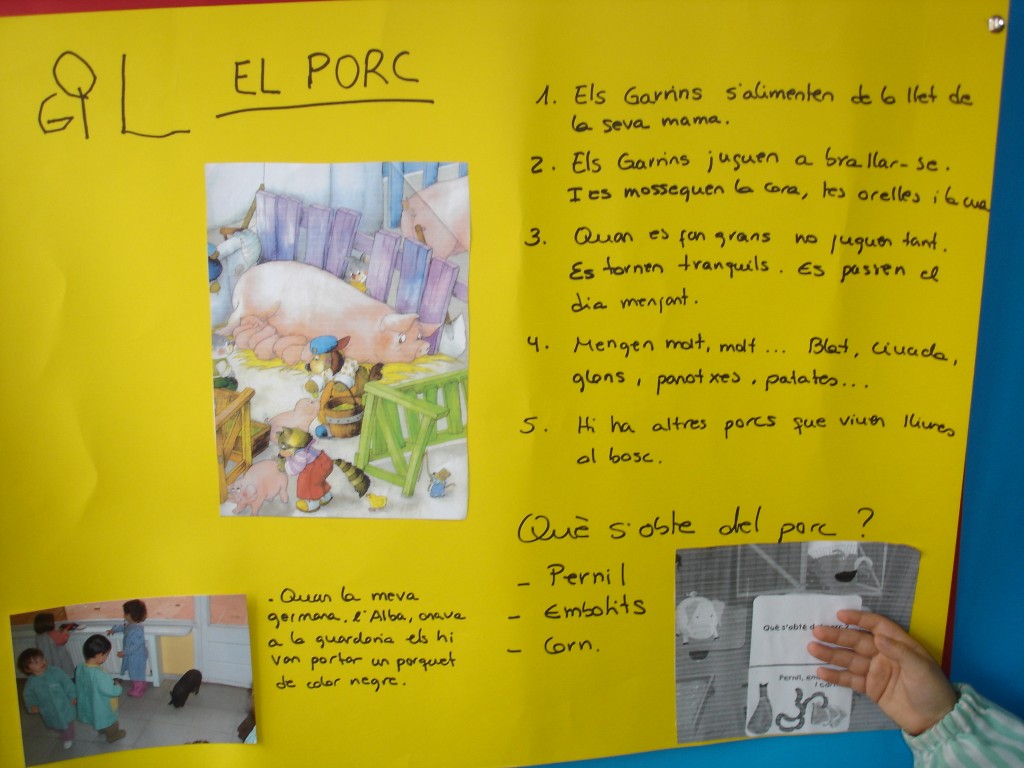 GIL
EL PORC
1. Els Garrins s'alimenten de la llet de
la seva mama.
2. Els Garrins juguen a brallar-se.
I es mosseguen la cara, les orelles i la cua
3. Quan es fan grans no juguen tant.
Es tornen tranquils. Es passen el
dia menjant.
4. Mengen molt, molt... Blat, civada,
glans, panotxes, patates...
5. Hi ha altres porcs que viuen lliures
al bosc.
Què s'obte del porc?
- Pernil
- Embotits
- Carn.
- Quan la meva
germana, l'Alba, anava
a la guarderia els hi
van portar un porquet
de color negre.
Què s'obté
Pernil,